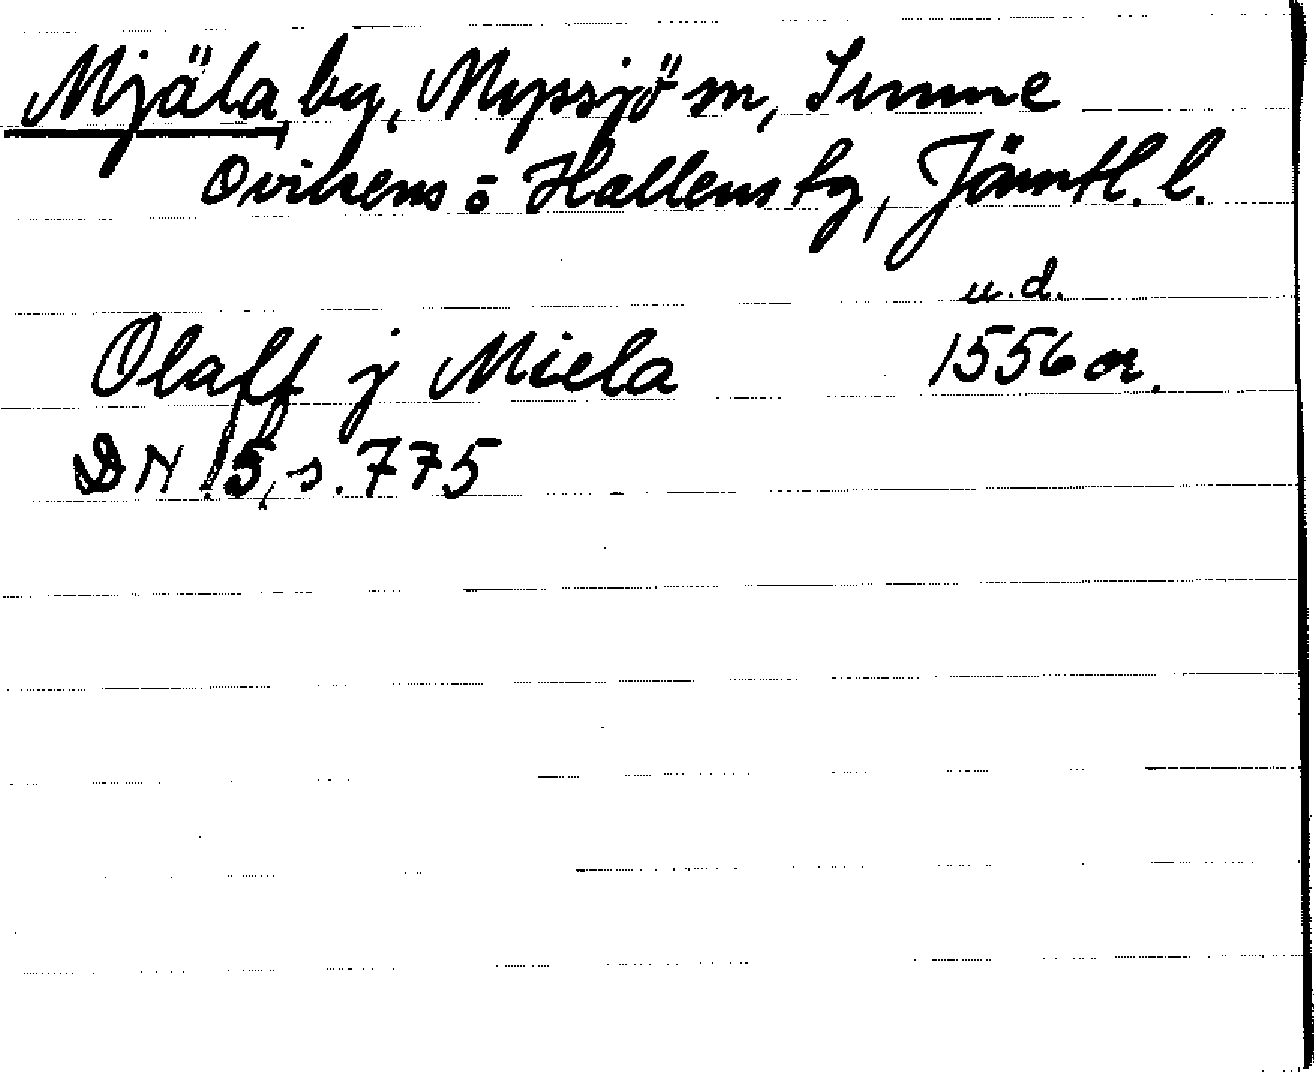 Mjäla, by, Myssjö sn, Sunne
Ovikens o Hallens tg, Jämtl. l.
u.d.
Olaff j Miela 1556 or.
DN 15, s. 775